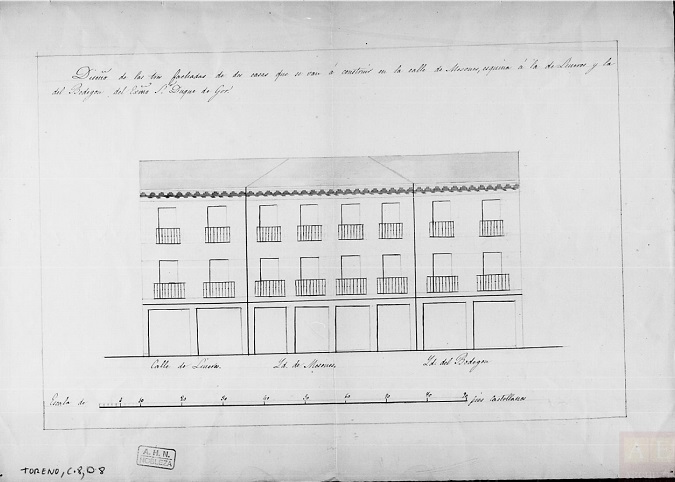 Diseño de las tres fachadas de dos casas que se van á construir en la calle de Mesones, esquina á la de Lucena y la
del Bodegon, del Exmo Sr. Duque de Gor.
Calle de Lucena. Yd. de Mesones. Yd. del Bodegon
Escala de pies Castellanos
A. H. N.
NOBLEZA
TORENO, C.8, D8